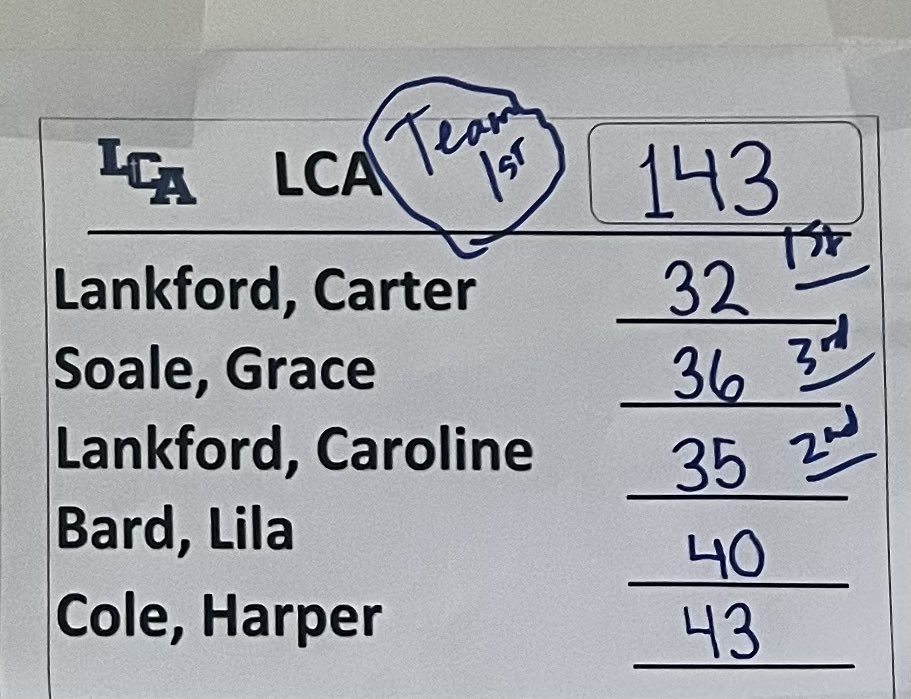 LCA LCA Team 1st 143
Lankford, Carter 32 1st
Soale, Grace 36 3rd
Lankford, Caroline 35 2nd
Bard, Lila 40
Cole, Harper 43